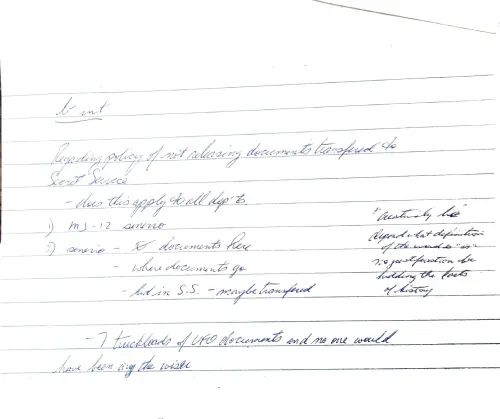 Regarding policy of not releasing documents transferred to
Secret Service
- does this apply to all dep'ts
1) MJ-12 senerio
2) senerio - documents here
- where documents go
- hid in S.S. - maybe transferred
Creatively lie
Depend what definition
of the word "is" is
no justification be
holding the facts
of history
- 7 truckloads of UFO documents and no one would
have been any the wiser